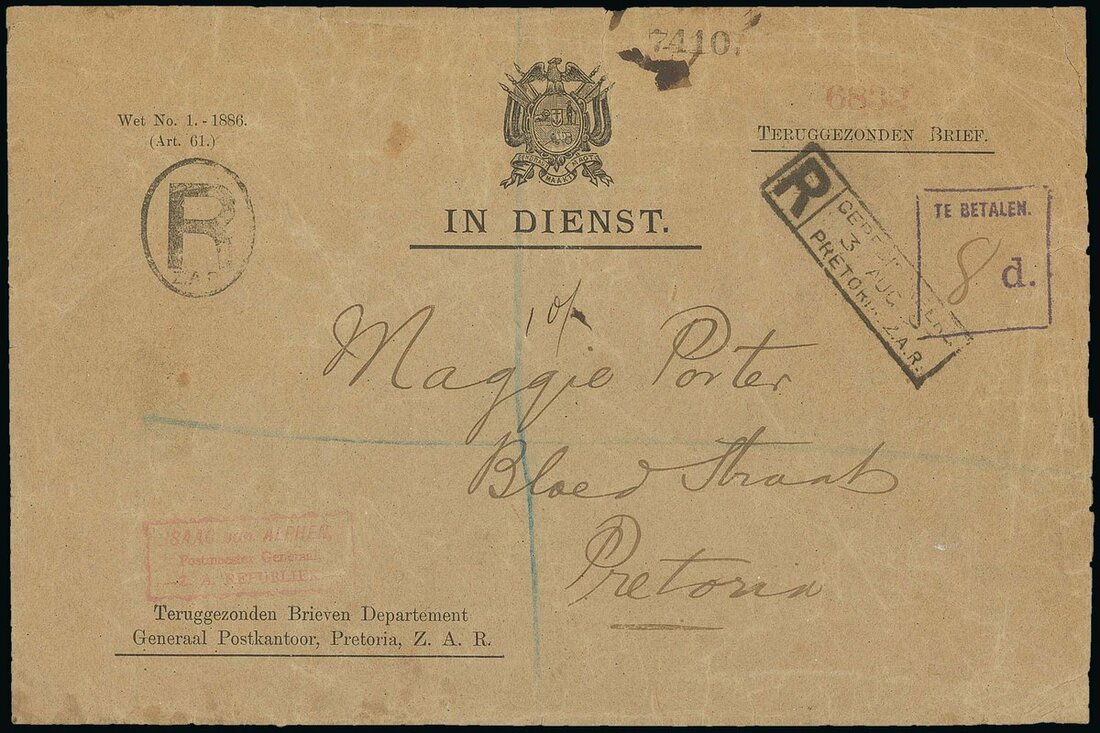 7410.
6832
Wet No. 1. - 1886.
(Art. 61.)
TERUGGEZONDEN BRIEF.
R
Z.A.R.
MAAKT MACHT
IN DIENST.
R
3 AUG
PRETORIA Z.A.R.
TE BETALEN.
8 d.
Maggie Porter
Bloed Straat
Pretoria
ISAAC van ALPHEN,
Postmeester Generaal,
Z. A. REPUBLIEK
Teruggezonden Brieven Departement
Generaal Postkantoor, Pretoria, Z. A. R.